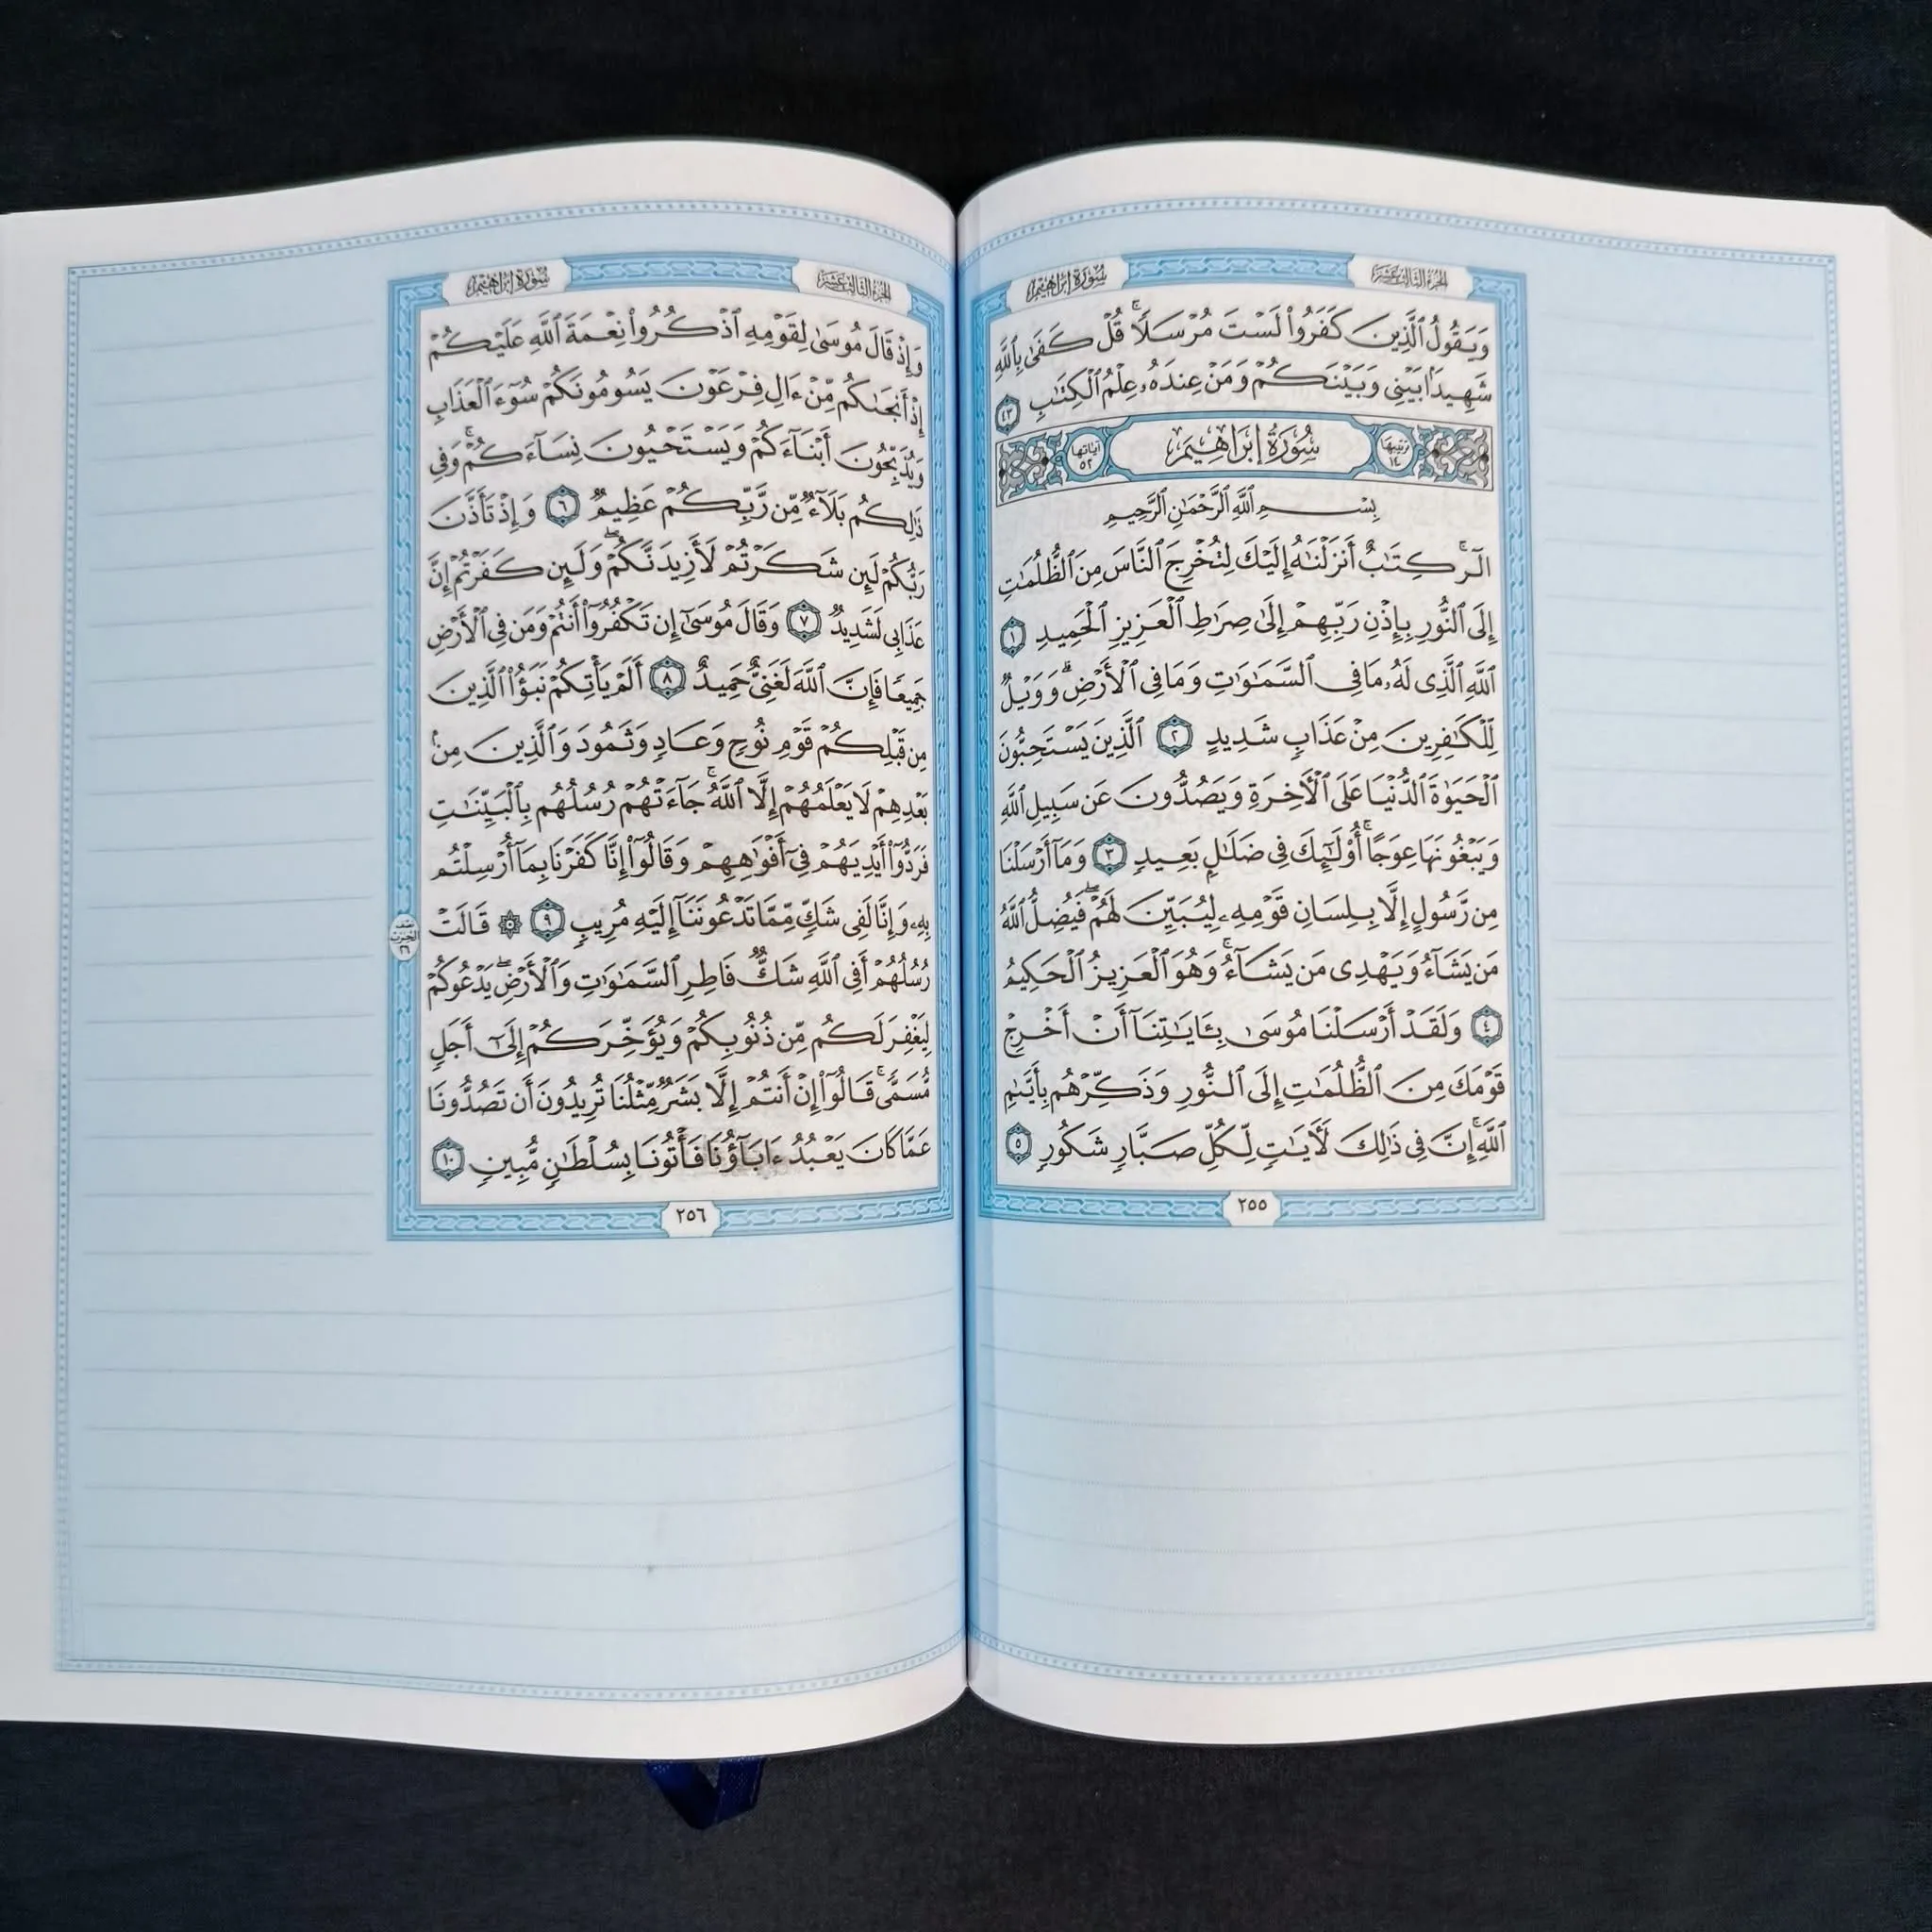 الجزء الثالث عشر
سورة إبراهيم
وَيَقُولُ ٱلَّذِينَ كَفَرُوا۟ لَسْتَ مُرْسَلًا ۚ قُلْ كَفَىٰ بِٱللَّهِ
شَهِيدًۢا بَيْنِى وَبَيْنَكُمْ وَمَنْ عِندَهُۥ عِلْمُ ٱلْكِتَـٰبِ ٤٣
ترتيبها ١٤
سُورَةُ إبراهِيمَ
آياتها ٥٢
بِسْمِ ٱللَّهِ ٱلرَّحْمَـٰنِ ٱلرَّحِيمِ
الٓر ۚ كِتَـٰبٌ أَنزَلْنَـٰهُ إِلَيْكَ لِتُخْرِجَ ٱلنَّاسَ مِنَ ٱلظُّلُمَـٰتِ
إِلَى ٱلنُّورِ بِإِذْنِ رَبِّهِمْ إِلَىٰ صِرَٰطِ ٱلْعَزِيزِ ٱلْحَمِيدِ ١
ٱللَّهِ ٱلَّذِى لَهُۥ مَا فِى ٱلسَّمَـٰوَٰتِ وَمَا فِى ٱلْأَرْضِ ۗ وَوَيْلٌ
لِّلْكَـٰفِرِينَ مِنْ عَذَابٍ شَدِيدٍ ٢ ٱلَّذِينَ يَسْتَحِبُّونَ
ٱلْحَيَوٰةَ ٱلدُّنْيَا عَلَى ٱلْـَٔاخِرَةِ وَيَصُدُّونَ عَن سَبِيلِ ٱللَّهِ
وَيَبْغُونَهَا عِوَجًا ۚ أُو۟لَـٰٓئِكَ فِى ضَلَـٰلٍۭ بَعِيدٍ ٣ وَمَآ أَرْسَلْنَا
مِن رَّسُولٍ إِلَّا بِلِسَانِ قَوْمِهِۦ لِيُبَيِّنَ لَهُمْ ۖ فَيُضِلُّ ٱللَّهُ
مَن يَشَآءُ وَيَهْدِى مَن يَشَآءُ ۚ وَهُوَ ٱلْعَزِيزُ ٱلْحَكِيمُ
٤ وَلَقَدْ أَرْسَلْنَا مُوسَىٰ بِـَٔايَـٰتِنَآ أَنْ أَخْرِجْ
قَوْمَكَ مِنَ ٱلظُّلُمَـٰتِ إِلَى ٱلنُّورِ وَذَكِّرْهُم بِأَيَّىٰمِ
ٱللَّهِ ۚ إِنَّ فِى ذَٰلِكَ لَـَٔايَـٰتٍ لِّكُلِّ صَبَّارٍ شَكُورٍ ٥
٢٥٥
الجزء الثالث عشر
سورة إبراهيم
وَإِذْ قَالَ مُوسَىٰ لِقَوْمِهِ ٱذْكُرُوا۟ نِعْمَةَ ٱللَّهِ عَلَيْكُمْ
إِذْ أَنجَىٰكُم مِّنْ ءَالِ فِرْعَوْنَ يَسُومُونَكُمْ سُوٓءَ ٱلْعَذَابِ
وَيُذَبِّحُونَ أَبْنَآءَكُمْ وَيَسْتَحْيُونَ نِسَآءَكُمْ ۚ وَفِى
ذَٰلِكُم بَلَآءٌ مِّن رَّبِّكُمْ عَظِيمٌ ٦ وَإِذْ تَأَذَّنَ
رَبُّكُمْ لَئِن شَكَرْتُمْ لَأَزِيدَنَّكُمْ ۖ وَلَئِن كَفَرْتُمْ إِنَّ
عَذَابِى لَشَدِيدٌ ٧ وَقَالَ مُوسَىٰٓ إِن تَكْفُرُوٓا۟ أَنتُمْ وَمَن فِى ٱلْأَرْضِ
جَمِيعًا فَإِنَّ ٱللَّهَ لَغَنِىٌّ حَمِيدٌ ٨ أَلَمْ يَأْتِكُمْ نَبَؤُا۟ ٱلَّذِينَ
مِن قَبْلِكُمْ قَوْمِ نُوحٍ وَعَادٍ وَثَمُودَ وَٱلَّذِينَ مِنۢ
بَعْدِهِمْ لَا يَعْلَمُهُمْ إِلَّا ٱللَّهُ ۚ جَآءَتْهُمْ رُسُلُهُم بِٱلْبَيِّنَـٰتِ
فَرَدُّوٓا۟ أَيْدِيَهُمْ فِىٓ أَفْوَٰهِهِمْ وَقَالُوٓا۟ إِنَّا كَفَرْنَا بِمَآ أُرْسِلْتُم
بِهِۦ وَإِنَّا لَفِى شَكٍّ مِّمَّا تَدْعُونَنَآ إِلَيْهِ مُرِيبٍ ٩ ۞ قَالَتْ
نصف الحزب ٢٦
رُسُلُهُمْ أَفِى ٱللَّهِ شَكٌّ فَاطِرِ ٱلسَّمَـٰوَٰتِ وَٱلْأَرْضِ ۖ يَدْعُوكُمْ
لِيَغْفِرَ لَكُم مِّن ذُنُوبِكُمْ وَيُؤَخِّرَكُمْ إِلَىٰٓ أَجَلٍ
مُّسَمًّى ۚ قَالُوٓا۟ إِنْ أَنتُمْ إِلَّا بَشَرٌ مِّثْلُنَا تُرِيدُونَ أَن تَصُدُّونَا
عَمَّا كَانَ يَعْبُدُ ءَابَآؤُنَا فَأْتُونَا بِسُلْطَـٰنٍ مُّبِينٍ ١٠
٢٥٦